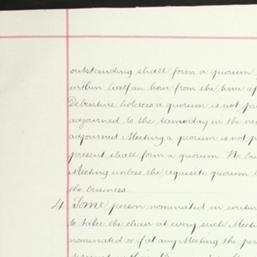 outstanding shall form a quorum
within half an hour from the time
Debenture holders a quorum is not
adjourned to the same day in the
adjourned Meeting a quorum is not
present shall form a quorum
Meeting unless the requisite quorum
the business
4. Some person nominated in
to take the chair at every such
nominated or if at any Meeting the